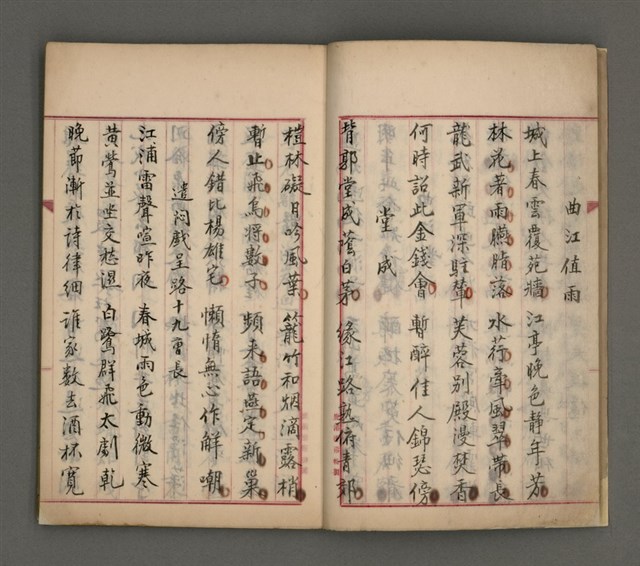 曲江值雨
城上春雲覆苑牆 江亭晚色靜年芳
林花著雨臙脂落 水荇牽風翠帶長
龍武新軍深駐輦 芙蓉別殿漫焚香
何時詔此金錢會 暫醉佳人錦瑟傍
堂成
背郭堂成蔭白茅 緣江路熟俯青郊
榿林礙日吟風葉 籠竹和烟滴露梢
暫止飛鳥將數子 頻來語燕定新巢
傍人錯比楊雄宅 懶惰無心作解嘲
遣悶戲呈路十九曹長
江浦雷聲喧昨夜 春城雨色動微寒
黃鶯並坐交愁濕 白鷺群飛太劇乾
晚節漸於詩律細 誰家數去酒杯寬